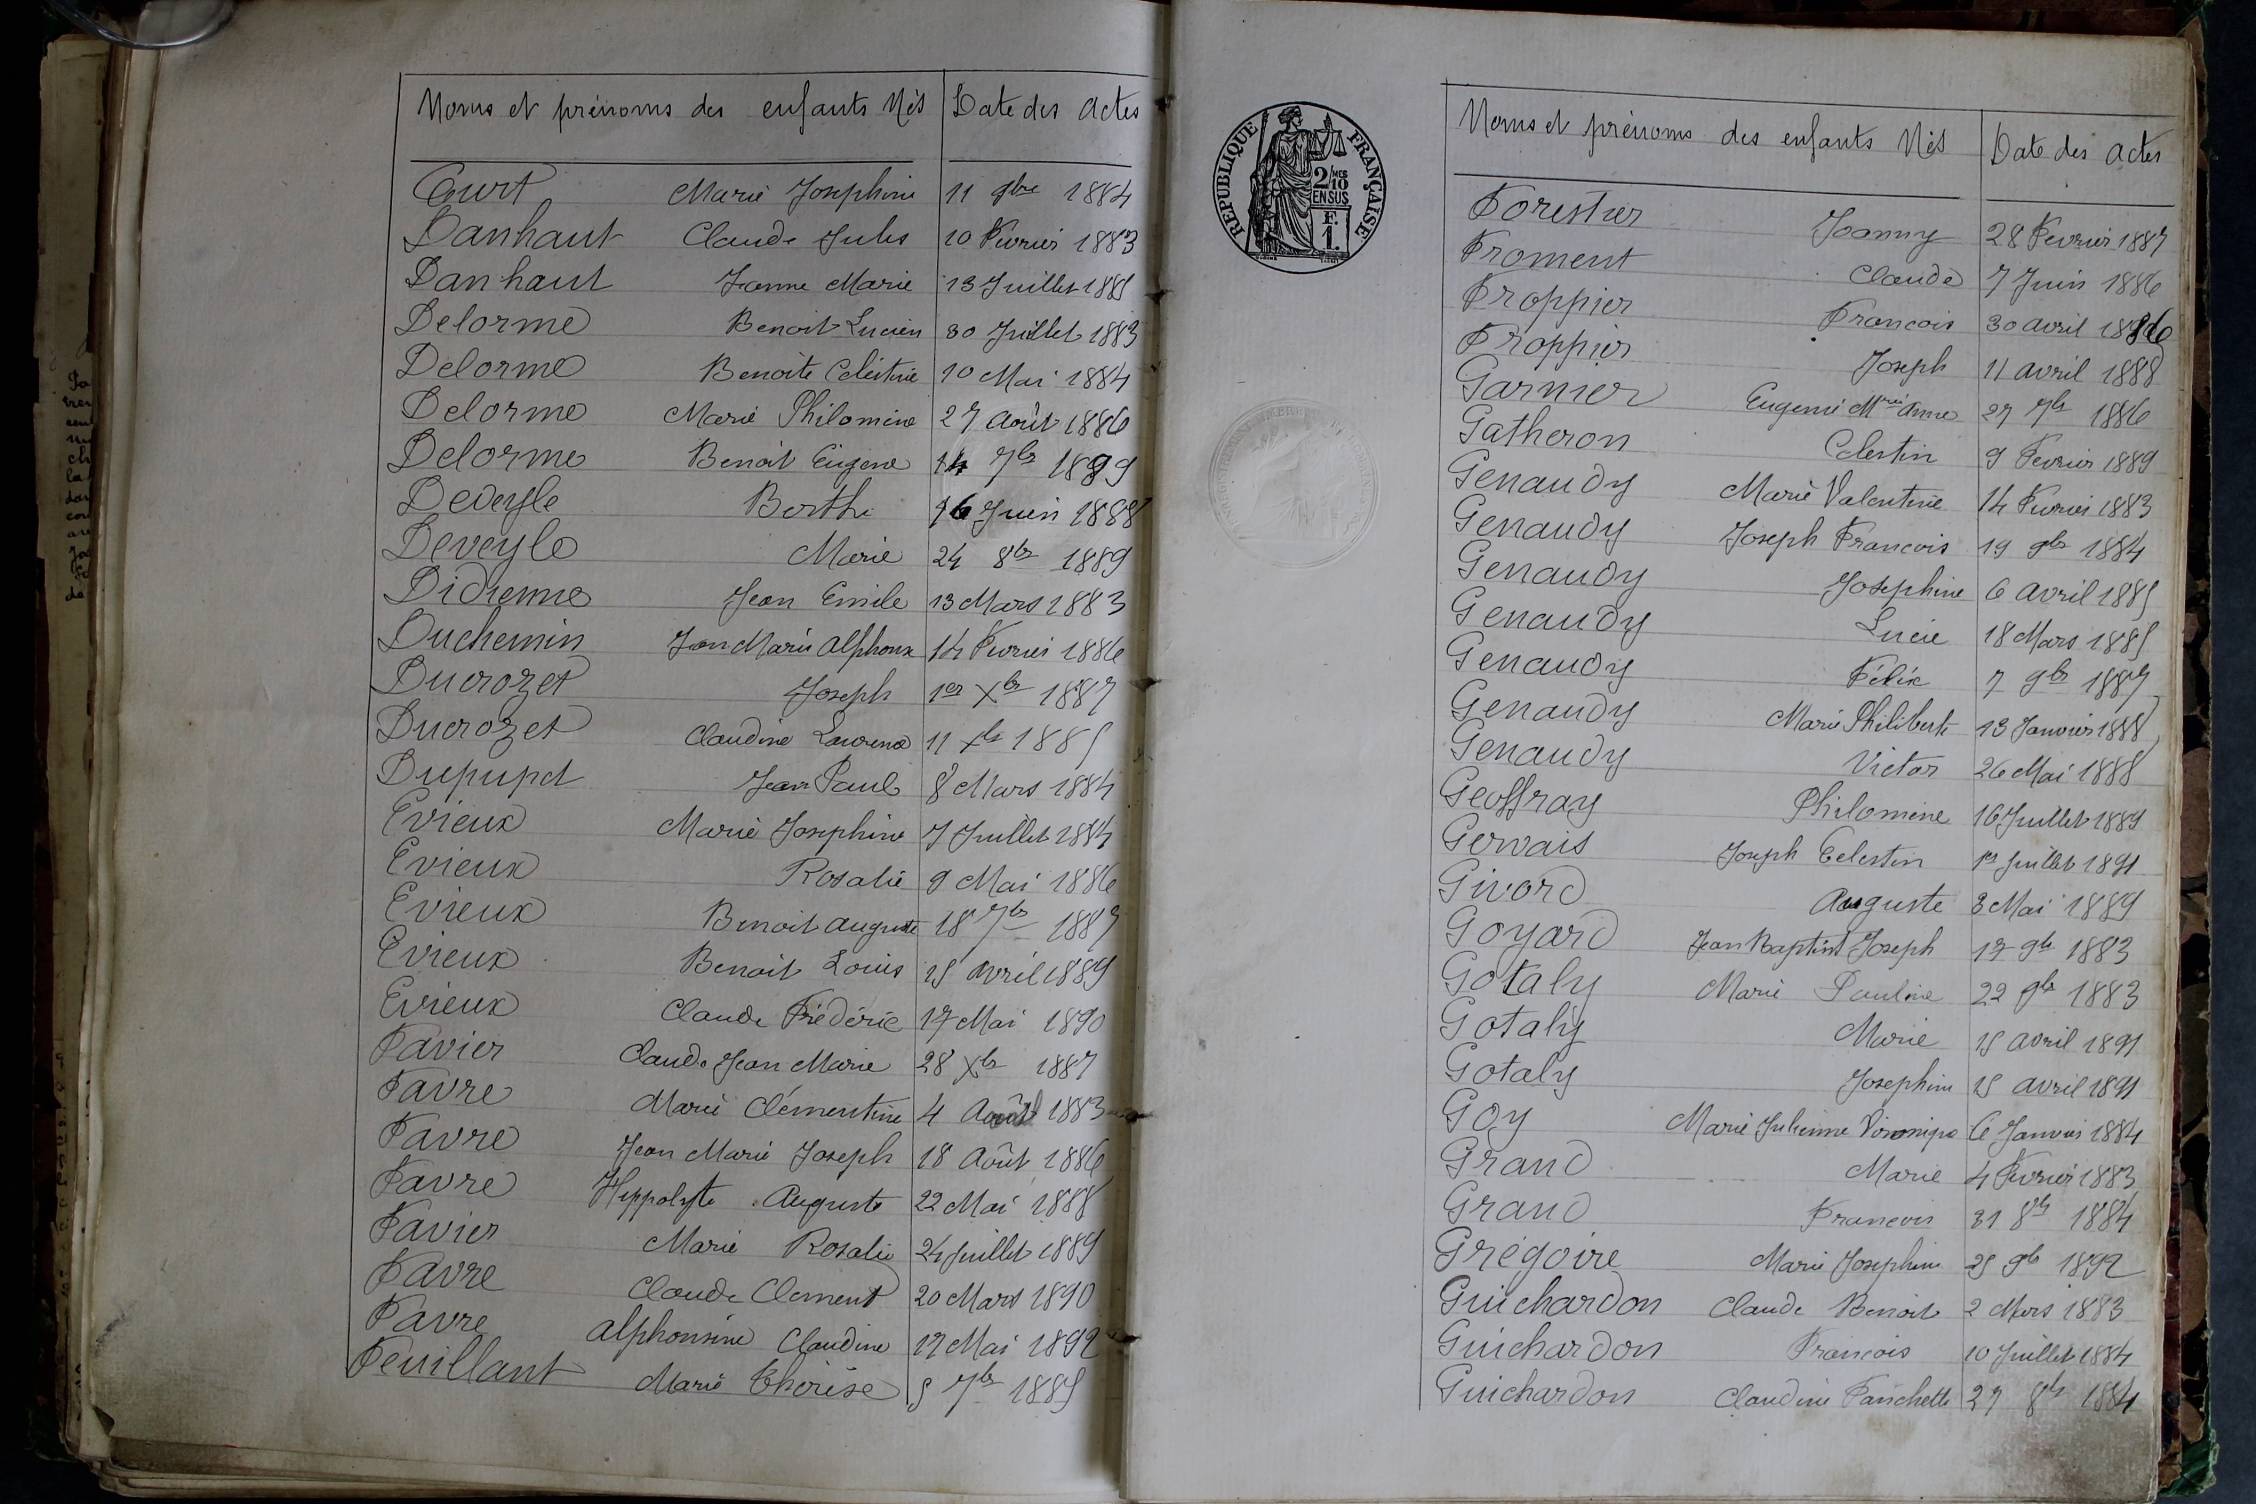 Noms et prénoms des enfants Nés Date des Actes
Curt Marie Josephine 11 9bre 1884
Danhaut Claude Jules 10 Fevrier 1883
Danhaut Jeanne Marie 13 Juillet 1885
Delorme Benoit Lucien 30 Juillet 1883
Delorme Benoite Celestine 10 Mai 1884
Delorme Marie Philomine 27 Août 1886
Delorme Benoit Eugene 14 7br 1889
Deveyle Berthe 16 Juin 1888
Deveyle Marie 24 8br 1889
Didienne Jean Emile 13 Mars 1883
Duchemin Jean Marie Alphonse 14 Fevrier 1886
Ducrozet Joseph 1er Xbr 1887
Ducrozet Claudine Laurence 11 Xbr 1885
Dupupet Jean Paul 8 Mars 1884
Evieux Marie Josephine 7 Juillet 1884
Evieux Rosalie 9 Mai 1886
Evieux Benoit Auguste 18 7br 1887
Evieux Benoit Louis 15 Avril 1889
Evieux Claude Frédéric 17 Mai 1890
Favier Claude Jean Marie 28 Xbr 1887
Favre Marie Clémentine 4 Août 1883
Favre Jean Marie Joseph 18 Août 1886
Favre Hippolyte Auguste 22 Mai 1888
Favier Marie Rosalie 24 Juillet 1889
Favre Claude Clement 20 Mars 1890
Favre Alphonsine Claudine 17 Mai 1892
Feuillant Marie Thérèse 5 7br 1885
RÉPUBLIQUE FRANÇAISE
2/10 MES
EN SUS
F.
1.
Noms et prénoms des enfants Nés Date des Actes
Forestier Joanny 28 Fevrier 1887
Froment Claude 7 Juin 1886
Froppier Francois 30 Avril 1886
Froppier Joseph 11 Avril 1888
Garnier Eugenie Mrie Anne 27 7br 1886
Gatheron Celestin 9 Fevrier 1889
Genaudy Marie Valentine 14 Fevrier 1883
Genaudy Joseph Francois 19 9br 1884
Genaudy Josephine 6 Avril 1885
Genaudy Lucie 18 Mars 1885
Genaudy Félix 7 9br 1887
Genaudy Marie Philiberte 13 Janvier 1888
Genaudy Victor 26 Mai 1888
Geoffray Philomine 16 Juillet 1889
Gervais Joseph Celestin 1er Juillet 1891
Givord Auguste 3 Mai 1889
Goyard Jean Baptiste Joseph 17 9br 1883
Gotaly Marie Pauline 22 9br 1883
Gotaly Marie 15 Avril 1891
Gotaly Josephine 15 Avril 1891
Goy Marie Julienne Véronique 6 Janvier 1884
Grand Marie 4 Fevrier 1883
Grand Francois 31 8br 1884
Grégoire Marie Josephine 25 9br 1892
Guichardon Claude Benoit 2 Mars 1883
Guichardon Francois 10 Juillet 1884
Guichardon Claudine Fanchette 27 8br 1884